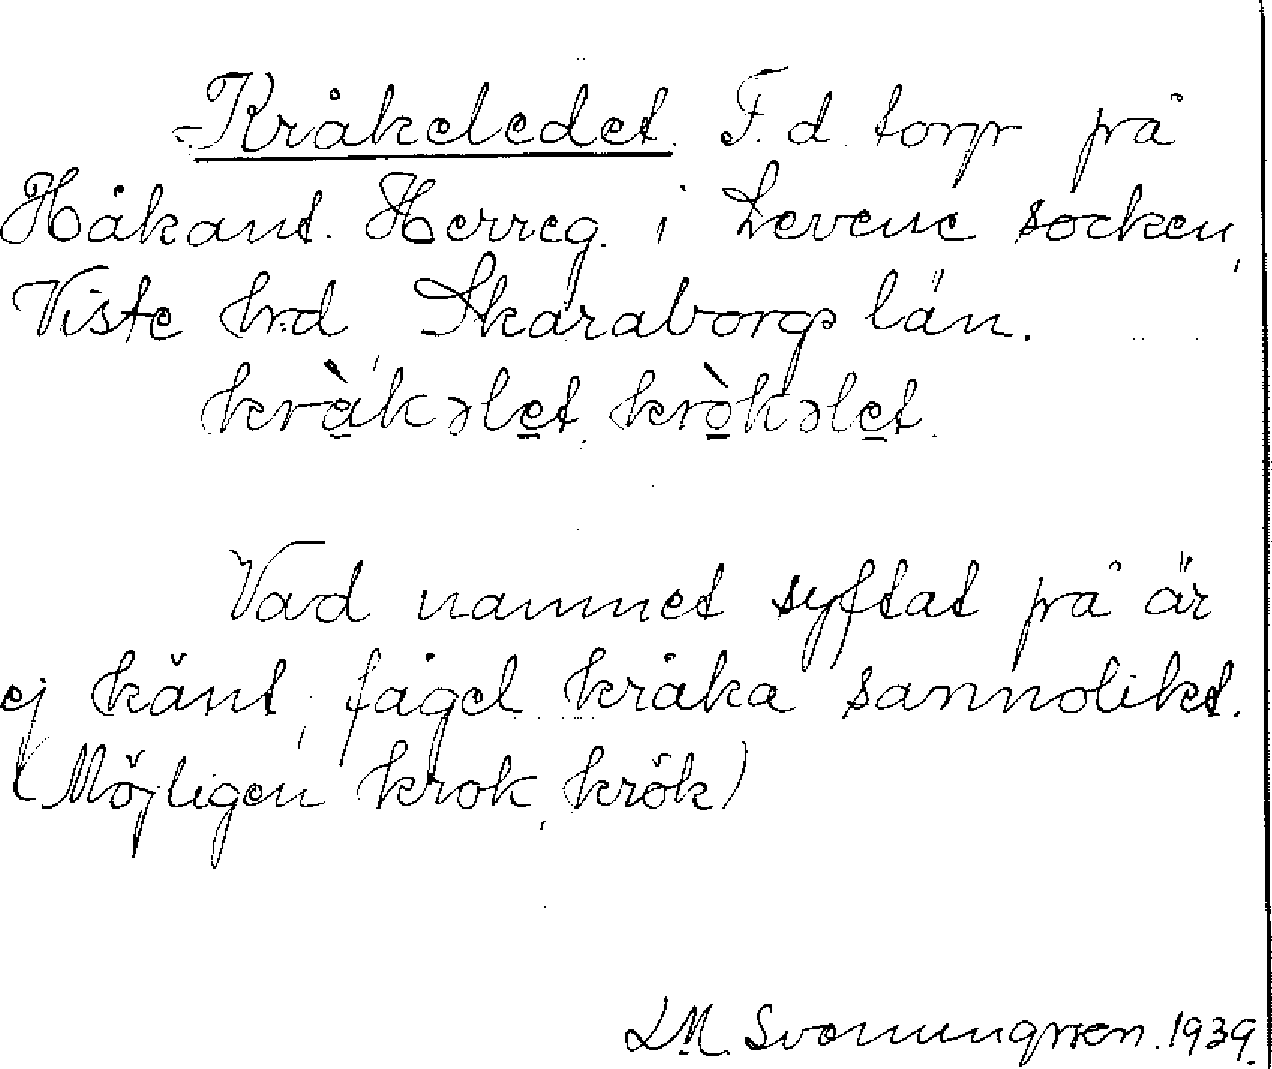 Kråkeledet. F. d. torp på
Håkant. Herreg. i Levene socken,
Viste hrd Skaraborgs län.
kràkəlet, kròkəlet.
Vad namnet syftat på är
ej känt, fågel kråka sannolikt.
(Möjligen krok, krök)
L.M. Svenungsson. 1939.